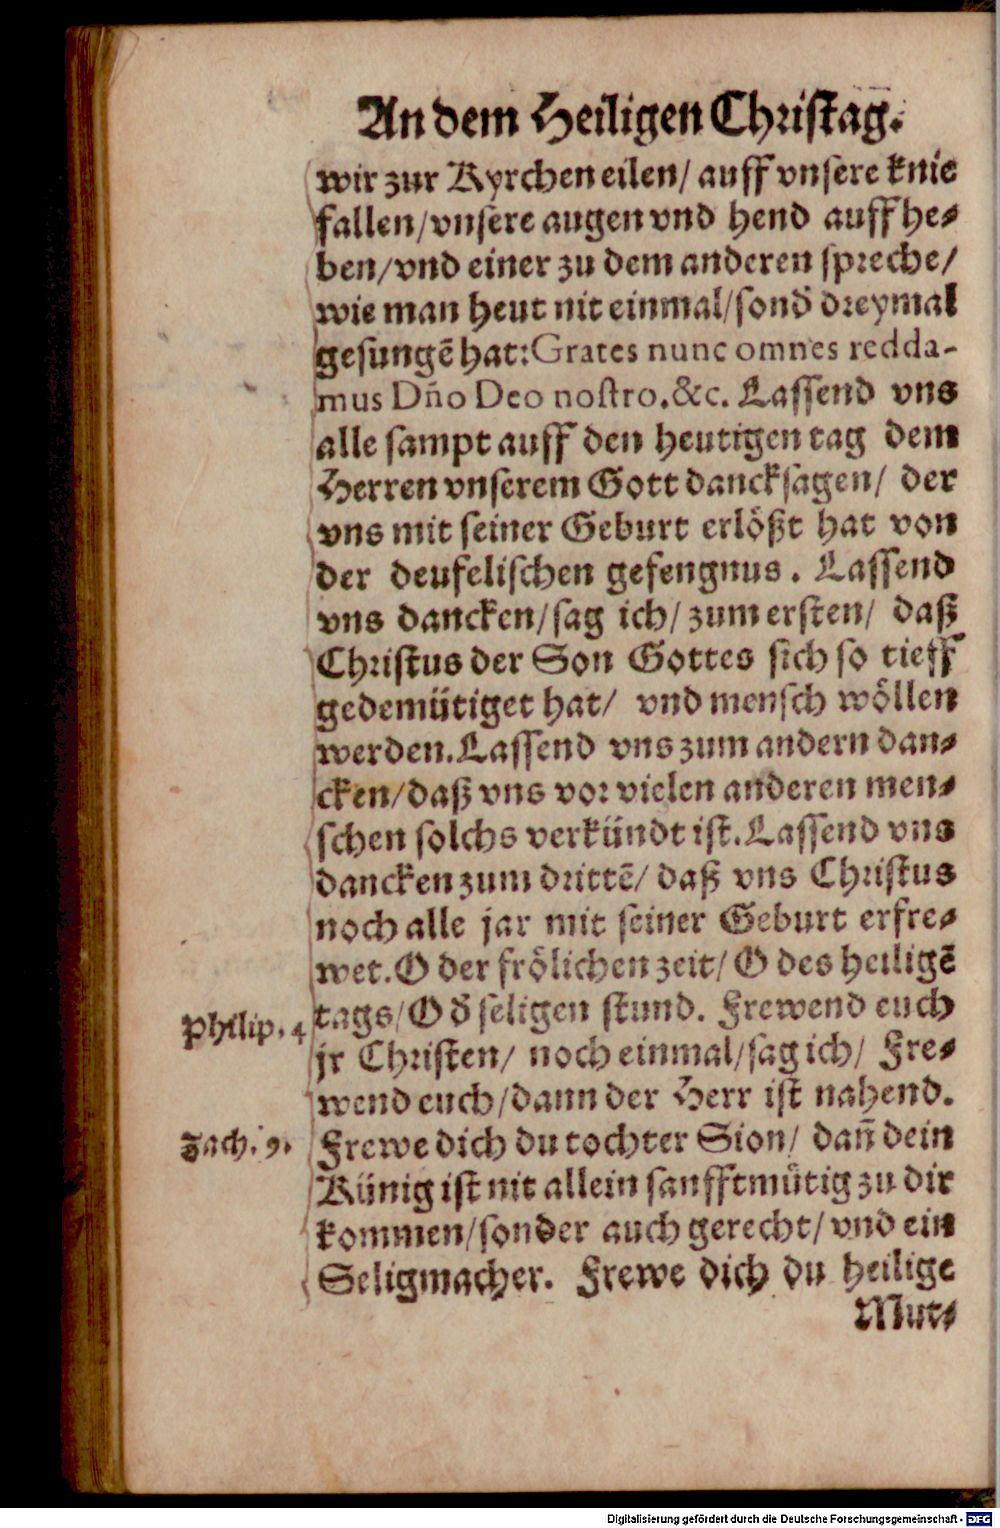 An dem Heiligen Christag.
wir zur Kyrchen eilen/ auff vnsere knie
fallen/vnsere augen vnd hend auff he-
ben/vnd einer zu dem anderen spreche/
wie man heut nit einmal/sond̕ dreymal
gesungẽ hat: Grates nunc omnes redda-
mus Dño Deo nostro.&c. Lassend vns
alle sampt auff den heutigen tag dem
Herren vnserem Gott dancksagen/ der
vns mit seiner Geburt erlößt hat von
der deufelischen gefengnus. Lassend
vns dancken/sag ich/ zum ersten/ daß
Christus der Son Gottes sich so tieff
gedemütiget hat/ vnd mensch wöllen
werden. Lassend vns zum andern dan-
cken/daß vns vor vielen anderen men-
schen solchs verkündt ist. Lassend vns
dancken zum drittẽ/ daß vns Christus
noch alle jar mit seiner Geburt erfre-
wet. O der frölichen zeit/ O des heiligẽ
tags/ O d̕ seligen stund. Frewend euch
Philip. 4
jr Christen/ noch einmal/sag ich/ Fre-
wend euch/dann der Herr ist nahend.
Zach. 9.
Frewe dich du tochter Sion/ dañ dein
Künig ist nit allein sanfftmütig zu dir
kommen/sonder auch gerecht/ vnd ein
Seligmacher. Frewe dich du heilige
Mut-
Digitalisierung gefördert durch die Deutsche Forschungsgemeinschaft - DFG